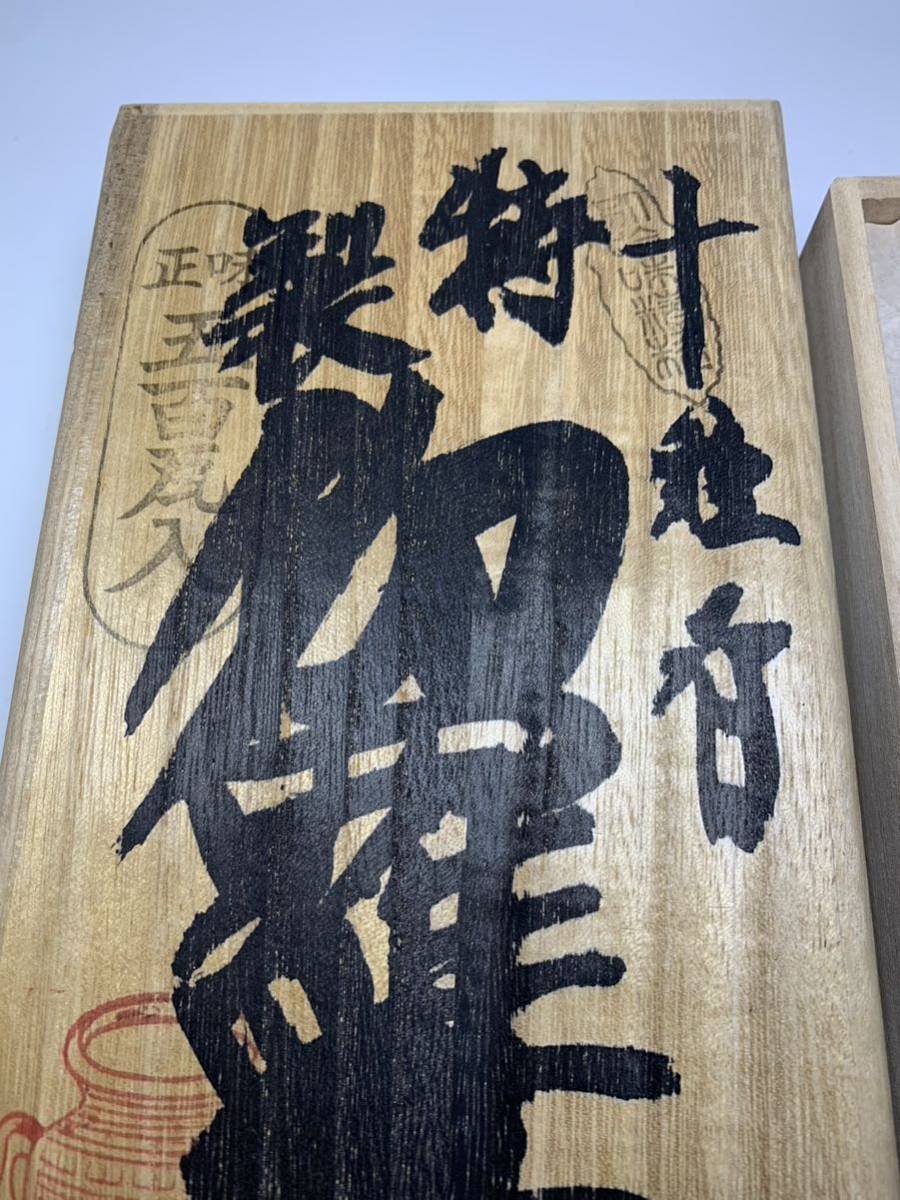 十炷香
特製
伽羅
正味
五百瓦入